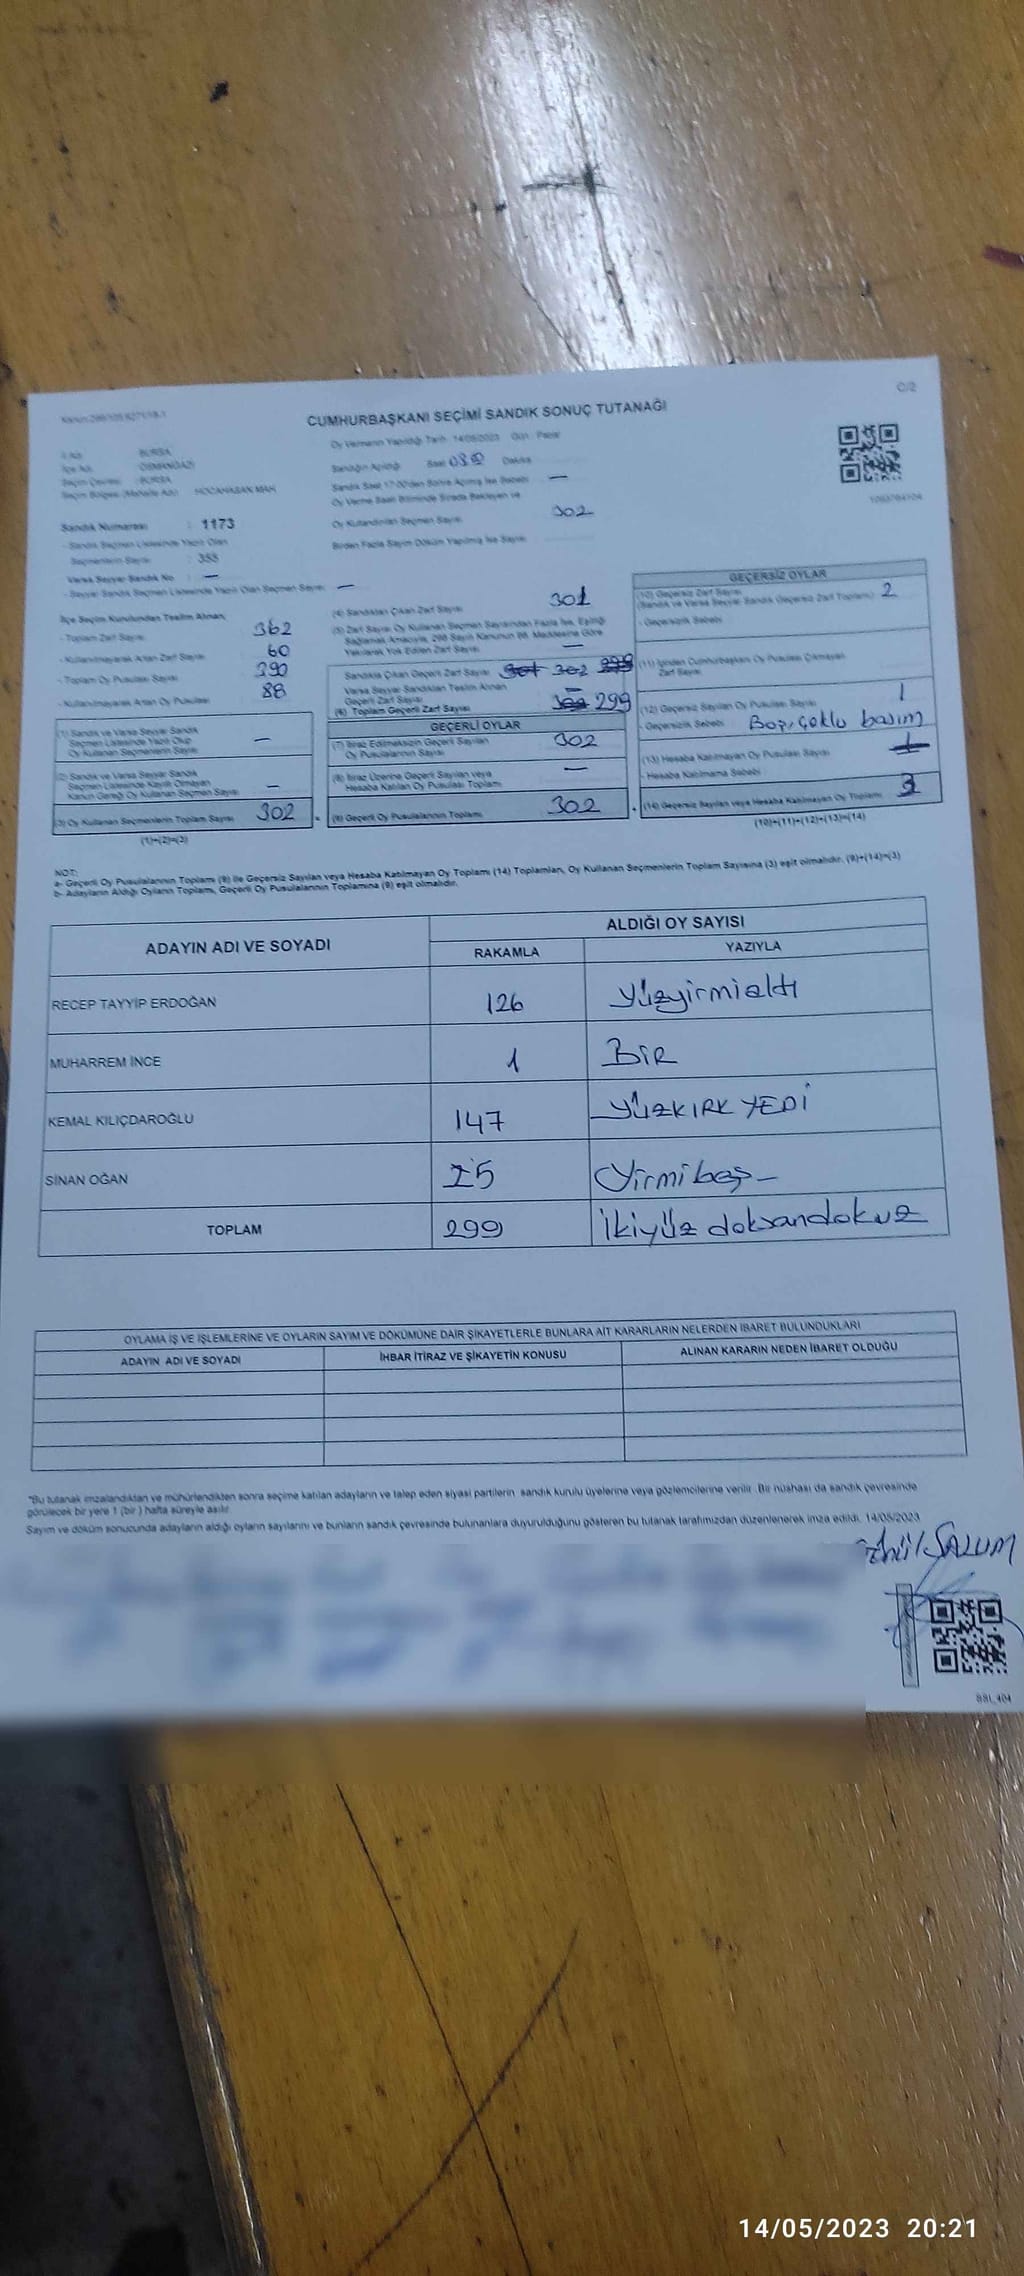 C/2
CUMHURBAŞKANI SEÇİMİ SANDIK SONUÇ TUTANAĞI
Oy Vermenin Yapıldığı Tarih: 14/05/2023 Gün: Pazar
İl Adı : BURSA
İlçe Adı : OSMANGAZİ
Seçim Çevresi : BURSA
Seçim Bölgesi (Mahalle Adı) : HOCAHASAN MAH.
Sandık Numarası : 1173
- Sandık Seçmen Listesinde Yazılı Olan
Seçmenlerin Sayısı : 355
Varsa Seyyar Sandık No : —
- Seyyar Sandık Seçmen Listesinde Yazılı Olan Seçmen Sayısı : —
Sandığın Açıldığı Saat Dakika
Sandık Saat 17:00'den Sonra Açılmış İse Sebebi : —
Oy Verme Saati Bitiminde Sırada Bekleyen ve
Oy Kullandırılan Seçmen Sayısı 302
Birden Fazla Sayım Döküm Yapılmış İse Sayısı
İlçe Seçim Kurulundan Teslim Alınan;
- Toplam Zarf Sayısı 362
- Kullanılmayarak Artan Zarf Sayısı 60
- Toplam Oy Pusulası Sayısı 390
- Kullanılmayarak Artan Oy Pusulası 88
(1) Sandık ve Varsa Seyyar Sandık
Seçmen Listesinde Yazılı Olup
Oy Kullanan Seçmen Sayısı —
(2) Sandık ve Varsa Seyyar Sandık
Seçmen Listesinde Kayıtlı Olmayan
Kanun Gereği Oy Kullanan Seçmen Sayısı —
(3) Oy Kullanan Seçmenlerin Toplam Sayısı 302
(1)+(2)=(3)
(4) Sandıktan Çıkan Zarf Sayısı 301
(5) Zarf Sayısı Oy Kullanan Seçmen Sayısından Fazla İse, Eşitliği
Sağlamak Amacıyla, 298 Sayılı Kanunun 98. Maddesine Göre
Yakılarak Yok Edilen Zarf Sayısı —
Sandıkta Çıkan Geçerli Zarf Sayısı 301 302 299
Varsa Seyyar Sandıktan Teslim Alınan
Geçerli Zarf Sayısı —
(6) Toplam Geçerli Zarf Sayısı 299
GEÇERLİ OYLAR
(7) İtiraz Edilmeksizin Geçerli Sayılan
Oy Pusulalarının Sayısı 302
(8) İtiraz Üzerine Geçerli Sayılan veya
Hesaba Katılan Oy Pusulası Toplamı —
(9) Geçerli Oy Pusulalarının Toplamı 302
GEÇERSİZ OYLAR
(10) Geçersiz Zarf Sayısı
(Sandık ve Varsa Seyyar Sandık Geçersiz Zarf Toplamı) 2
- Geçersizlik Sebebi :
(11) İçinden Cumhurbaşkanı Oy Pusulası Çıkmayan
Zarf Sayısı
(12) Geçersiz Sayılan Oy Pusulası Sayısı 1
- Geçersizlik Sebebi : Boş, çoklu basım
(13) Hesaba Katılmayan Oy Pusulası Sayısı 1
- Hesaba Katılmama Sebebi :
(14) Geçersiz Sayılan veya Hesaba Katılmayan Oy Toplamı 3
(10)+(11)+(12)+(13)=(14)
NOT:
a- Geçerli Oy Pusulalarının Toplamı (9) ile Geçersiz Sayılan veya Hesaba Katılmayan Oy Toplamı (14) Toplamları, Oy Kullanan Seçmenlerin Toplam Sayısına (3) eşit olmalıdır. (9)+(14)=(3)
b- Adayların Aldığı Oyların Toplamı, Geçerli Oy Pusulalarının Toplamına (9) eşit olmalıdır.
ADAYIN ADI VE SOYADI ALDIĞI OY SAYISI
RAKAMLA YAZIYLA
RECEP TAYYİP ERDOĞAN 126 Yüzyirmialtı
MUHARREM İNCE 1 BİR
KEMAL KILIÇDAROĞLU 147 YÜZKIRK YEDİ
SİNAN OĞAN 25 Yirmibeş –
TOPLAM 299 İkiyüz doksandokuz
OYLAMA İŞ VE İŞLEMLERİNE VE OYLARIN SAYIM VE DÖKÜMÜNE DAİR ŞİKAYETLERLE BUNLARA AİT KARARLARIN NELERDEN İBARET BULUNDUKLARI
ADAYIN ADI VE SOYADI İHBAR İTİRAZ VE ŞİKAYETİN KONUSU ALINAN KARARIN NEDEN İBARET OLDUĞU
*Bu tutanak imzalandıktan ve mühürlendikten sonra seçime katılan adayların ve talep eden siyasi partilerin sandık kurulu üyelerine veya gözlemcilerine verilir. Bir nüshası da sandık çevresinde
görülecek bir yere 1 (bir) hafta süreyle asılır.
Sayım ve döküm sonucunda adayların aldığı oyların sayılarını ve bunların sandık çevresinde bulunanlara duyurulduğunu gösteren bu tutanak tarafımızdan düzenlenerek imza edildi. 14/05/2023
SALUM
BSI_404
14/05/2023 20:21